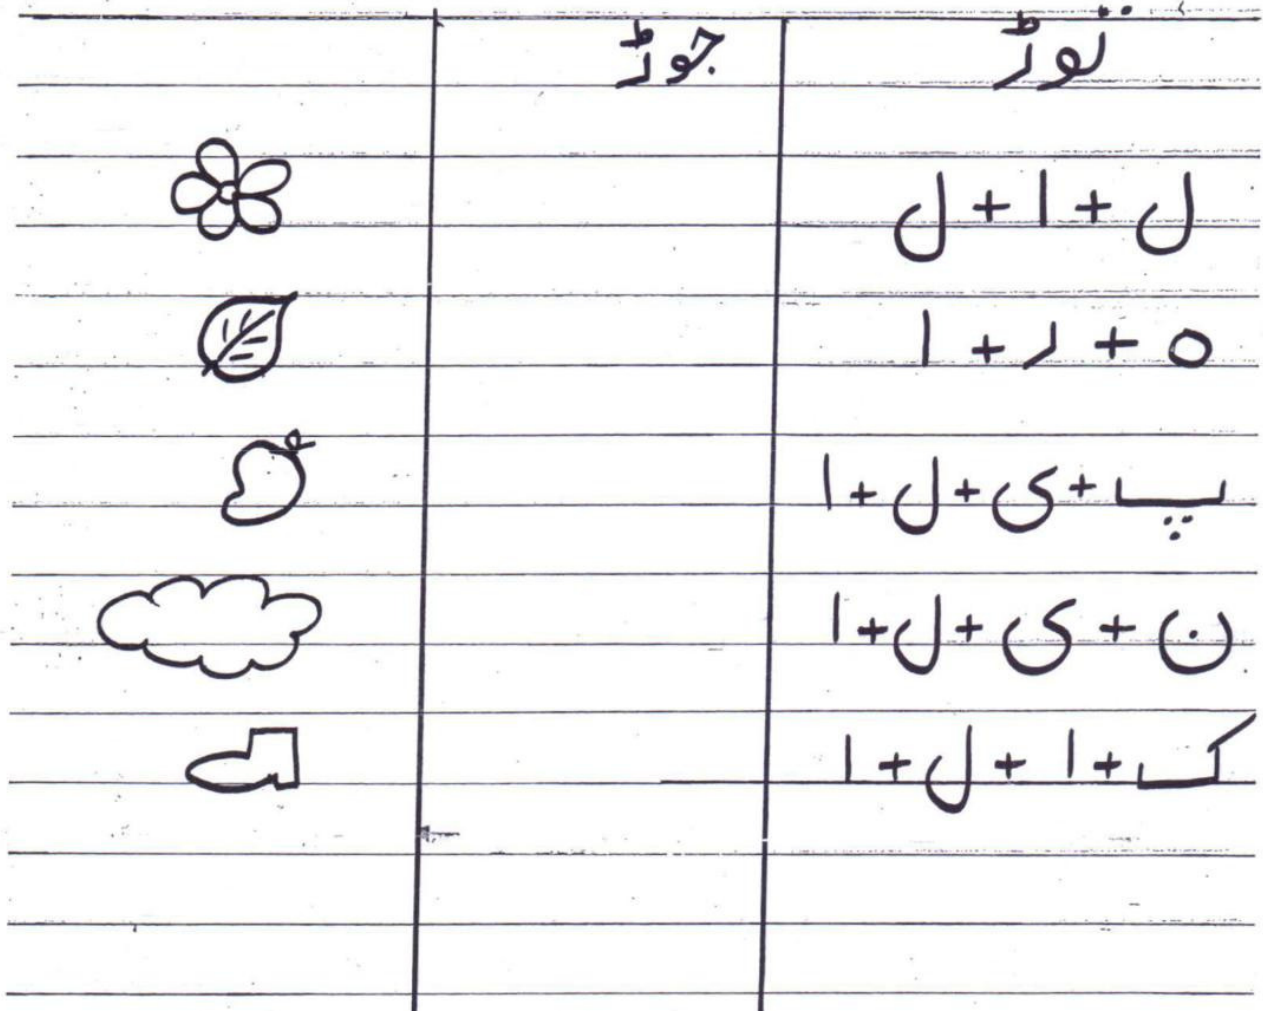 توڑ جوڑ
ل + ا + ل
ہ + ر + ا
پ + ی + ل + ا
ن + ی + ل + ا
ک + ا + ل + ا